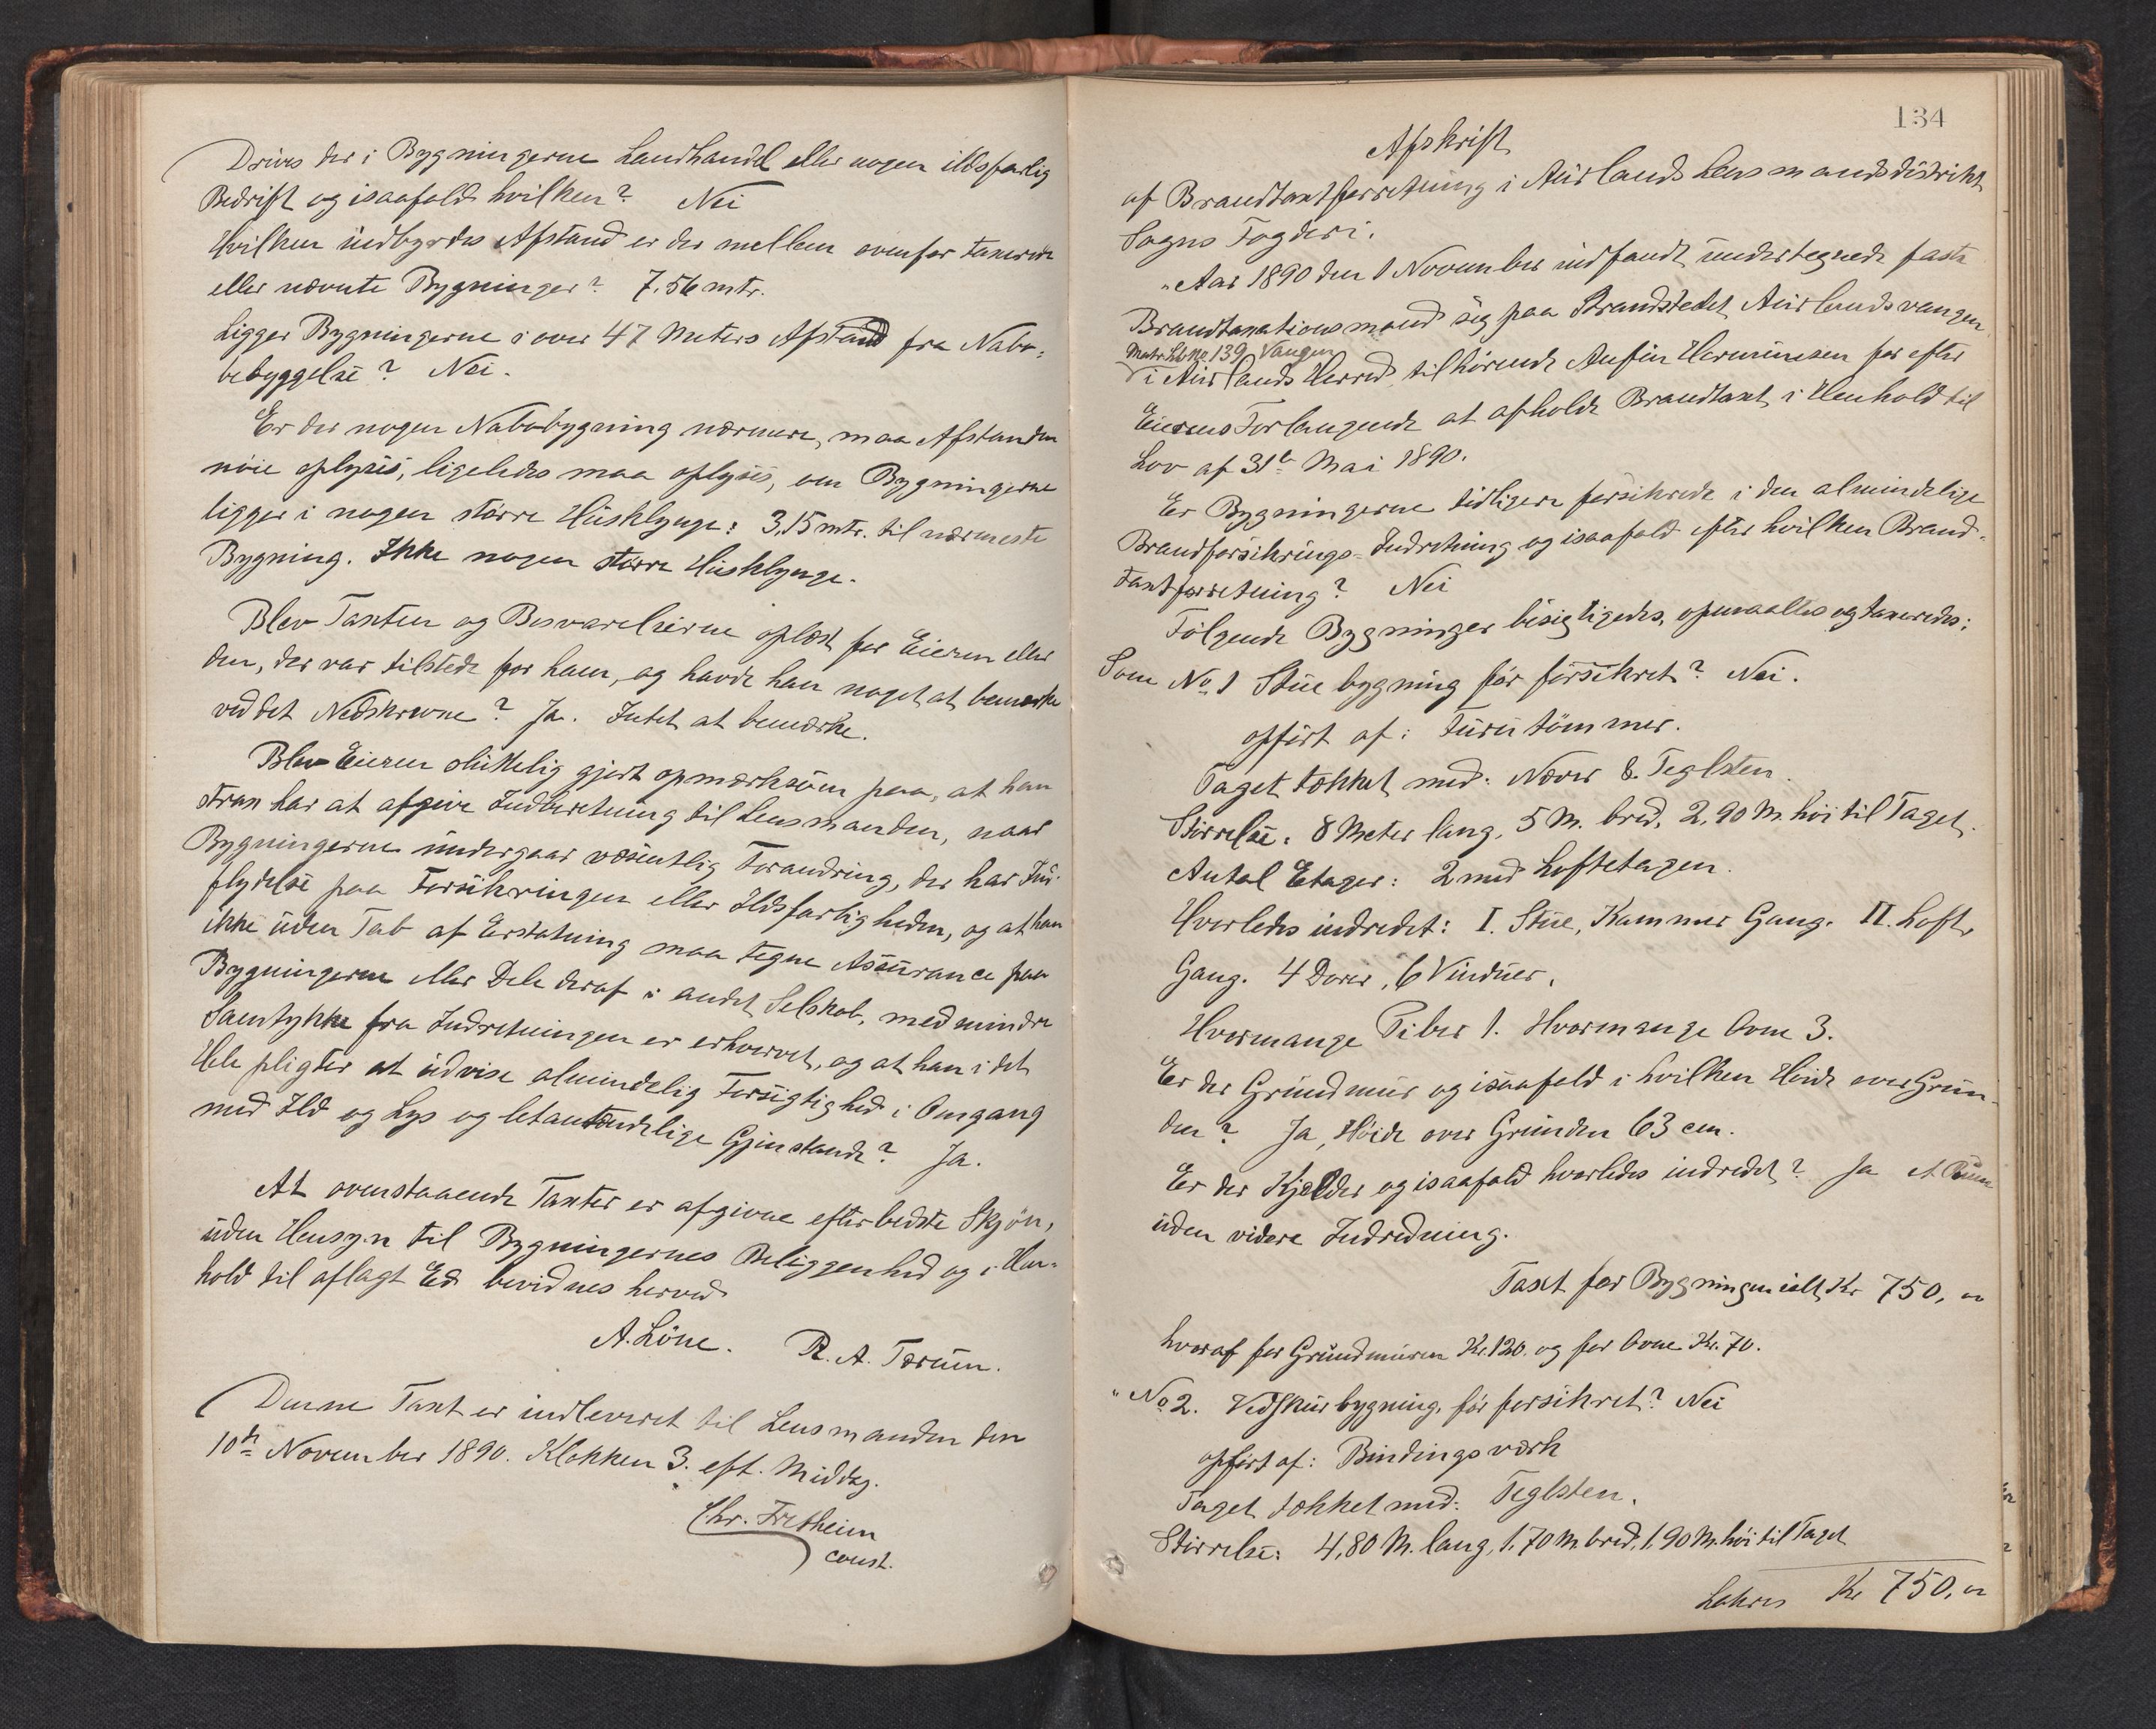 Drives der i Bygningerne Landhandel eller nogen ildsfarlig
Bedrift og isaafald hvilken? Nei
Hvilken indbyrdes Afstand er der mellem ovenfor taxerede
eller nævnte Bygninger? 7.56 mtr.
Ligger Bygningerne i over 47 Meters Afstand fra Nabo-
bebyggelse? Nei.
Er der nogen Nabobygning nærmere, maa Afstanden
nöie oplyses, ligeledes maa oplyses, om Bygningerne
ligger i nogen större Husklynge: 3,15 mtr. til nærmeste
Bygning. Ikke nogen större Husklynge.
Blev Taxten og Besvarelserne oplæst for Eieren eller
den, der var tilstede for ham, og havde han noget at bemærke
ved det Nedskrevne? Ja. Intet at bemærke.
Blev Eieren slutelig gjort opmærksom paa, at han
strax har at afgive Indberetning til Lensmanden, naar
Bygningerne undergaar væsentlig Forandring, der har Ind-
flydelse paa Forsikringen eller Ildsfarligheden, og at han
ikke uden Tab af Erstatning maa tegne Assurance paa
Bygningerne eller Dele deraf i andet Selskab, medmindre
Samtykke fra Indretningen er erhvervet, og at han i det
Hele pligter at udvise almindelig Forsigtighed i Omgang
med Ild og Lys og letantændelige Gjenstande? Ja.
At ovenstaaende Taxter er afgivne efter bedste Skjön,
uden Hensyn til Bygningernes Beliggenhed og i Hen-
hold til aflagt Ed bevidnes herved
A. Löne. R. A. Tærum.
Denne Taxt er indleveret til Lensmanden den
10de November 1890. Klokken 3. eft. Middag.
Chr. Fretheim
const.
134
Afskrift
af Brandtaxtforretning i Aurlands Lensmandsdistrikt
Sogns Fogderi.
"Aar 1890 den 1 November indfandt undertegnede faste
Brandtaxationsmænd sig paa Brandstedet Aurlandsvangen
Matr. Lbno 139 Vangen
i Aurlands Herred tilhörende Anfin Hermunsen for efter
Eierens Forlangende at afholde Brandtaxt i Henhold til
Lov af 31te Mai 1890.
Er Bygningerne tidligere forsikrede i den almindelige
Brandforsikrings-Indretning og isaafald efter hvilken Brand-
taxtforretning? Nei
Fölgende Bygninger besigtigedes, opmaaltes og taxeredes:
Som No 1 Stuebygning för forsikret? Nei.
opfört af: Furutömmer.
Taget tækket med: Næver & Teglsten.
Störrelse: 8 Meter lang, 5 M. bred, 2,90 M. höi til Taget.
Antal Etager: 2 med Loftetagen.
Hvorledes indredet: I. Stue, Kammer Gang. II. Loft,
Gang. 4 Dörer, 6 Vinduer.
Hvormange Piber 1. Hvormange Ovne 3.
Er der Grundmur og isaafald i hvilken Höide over Grun-
den? Ja, Höide over Grunden 63 cm.
Er der Kjelder og isaafald hvorledes indredet? Ja et Rum
uden videre Indredning.
Taxt for Bygningen ialt Kr 750, "
hvoraf for Grundmuren Kr. 120. og for Ovne Kr. 70.
" No 2. Vedskurbygning, för forsikret? Nei
opfört af: Bindingsværk
Taget tækket med: Teglsten.
Störrelse: 4,80 M. lang, 1,70 M. bred, 1,90 M. höi til Taget
Lateres Kr 750, "